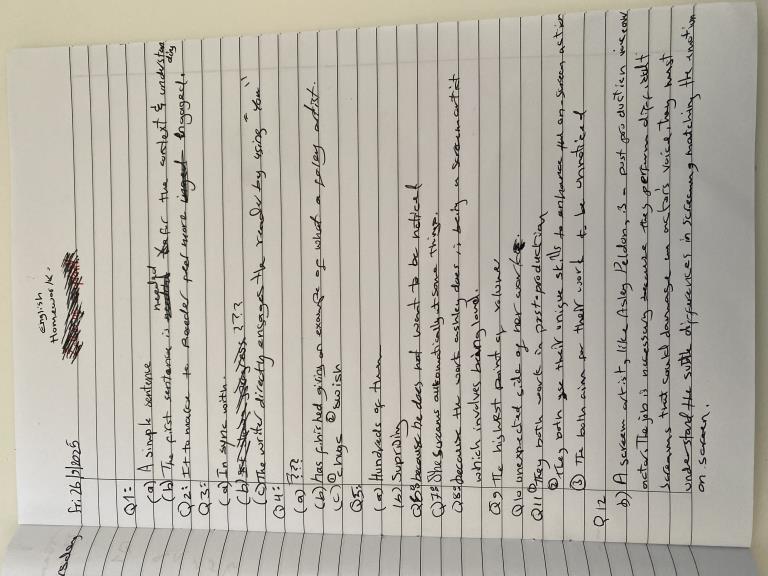 English
Homework:
Fri 26/9/2025
Q1:
(a) A simple sentence
needed
(b) The first sentence is for the context & understan
ding
Q2: It to make to Reeder feel more Engaged.
Q3:
(a) In sync with
(b) ???
(c) The writer directly engages the reader by using "You"
Q4:
(a) ???
(b) has finished giving an example of what a foley artist.
(c) ① ② Swish
Q5:
(a) Hundreds of them
(b) Supriding
Q6: because he does not want to be noticed
Q7: She screams automatically at some things.
Q8: because the work ashley does is being a scream artist
which involves being loud.
Q9 The highest point of volume
Q10 unexpected side of her work.
Q11 ① They both work in post-production
② They both use their unique skills to enhance the on-screen action
③ The both aim for their work to be unnoticed
Q12
b) A scream artist, like Asley Peldon, is a post production
actor. The job is necessary because they perform difficult
screams that could damage an actors voice, they must
understand the subtle differences in screaming matching the emotion
on screen.